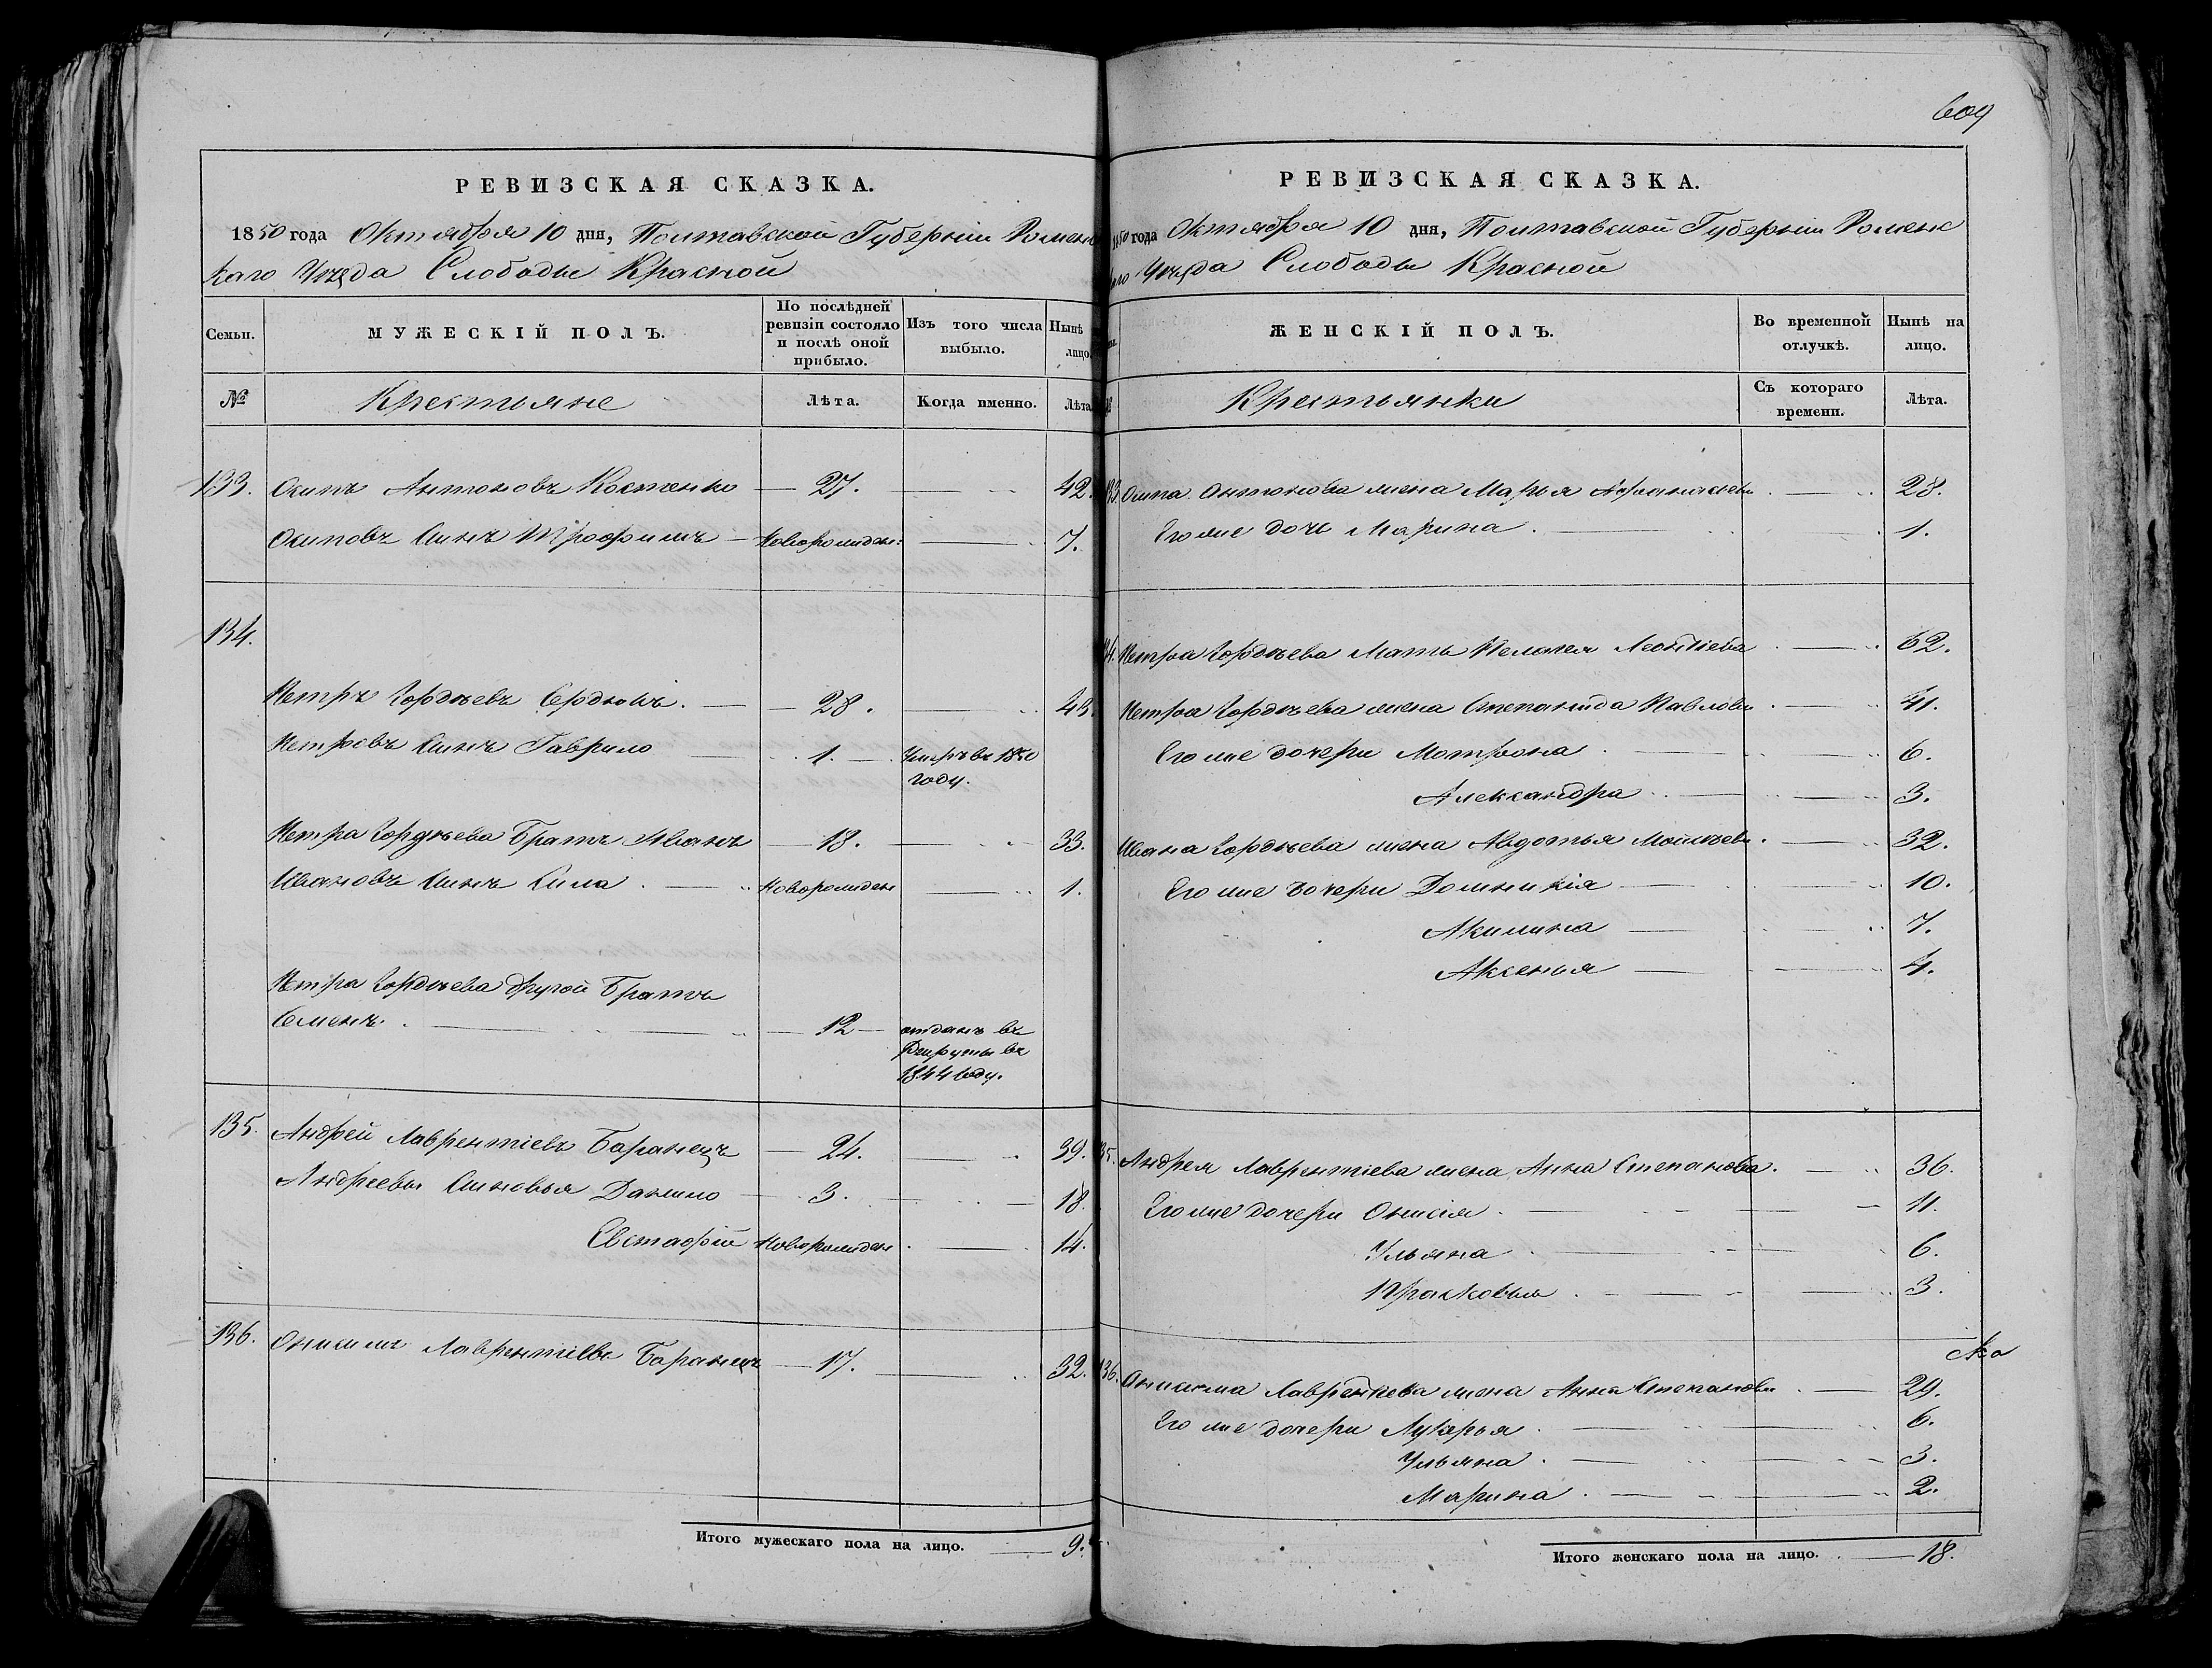 РЕВИЗСКАЯ СКАЗКА.
1850 года Октября 10 дня, Полтавской Губерніи Роменс
каго Уезда Слободы Красной
Семьи.
МУЖЕСКІЙ ПОЛЪ.
По послѣдней ревизіи состояло и послѣ оной прибыло.
Изъ того числа выбыло.
Нынѣ лицо
№
Крестьяне
Лѣта.
Когда именно.
Лѣта
133. Осипъ Антоновъ Костенко 27. 42.
Осиповъ Сынъ Трофимъ Новорожден: 7.
134.
Петръ Гордѣевъ Сердюкъ. 28. 43.
Петровъ Сынъ Гаврило 1. Умръ въ 1850
году.
Петра Гордѣева Братъ Иванъ 18. 33.
Ивановъ Сынъ Сила. Новорожден 1.
Петра Гордѣева другой Братъ
Семенъ. 12 отданъ въ
Рекруты въ
1844 Году.
135. Андрей Лаврентіевъ Баранецъ 24. 39.
Андреевы Сыновья Данило 3. 18.
Евстафій Новорожден. 14.
136. Онисимъ Лаврентіевъ Баранецъ 17. 32.
Итого мужескаго пола на лицо. 9.
609
РЕВИЗСКАЯ СКАЗКА.
1850 года Октября 10 дня, Полтавской Губерніи Роменс
каго Уезда Слободы Красной
ЖЕНСКІЙ ПОЛЪ.
Во временной отлучкѣ.
Нынѣ на лицо.
Крестьянки
Съ котораго времени.
Лѣта.
133. Осипа Антонова жена Марья Афанасьева 28.
Его же дочь Марина. 1.
134. Петра Гордѣева Мать Пелагея Леонтіева 62.
Петра Гордѣева жена Степанида Павлова 41.
Его же дочери Мотрона 6.
Александра 3.
Ивана Гордѣева жена Авдотья Моисѣева. 32.
Его же дочери Домникія 10.
Акилина 7.
Аксенья 4.
135. Андрея Лаврентіева жена Анна Степанова. 36.
Его же дочери Онисія. 11.
Ульяна 6.
Прасковья 3.
136. Онисима Лаврентіева жена Анна Степанова 29.
Его же дочери Лукерья 6.
Ульяна. 3.
Марина. 2.
Итого женскаго пола на лицо. 18.